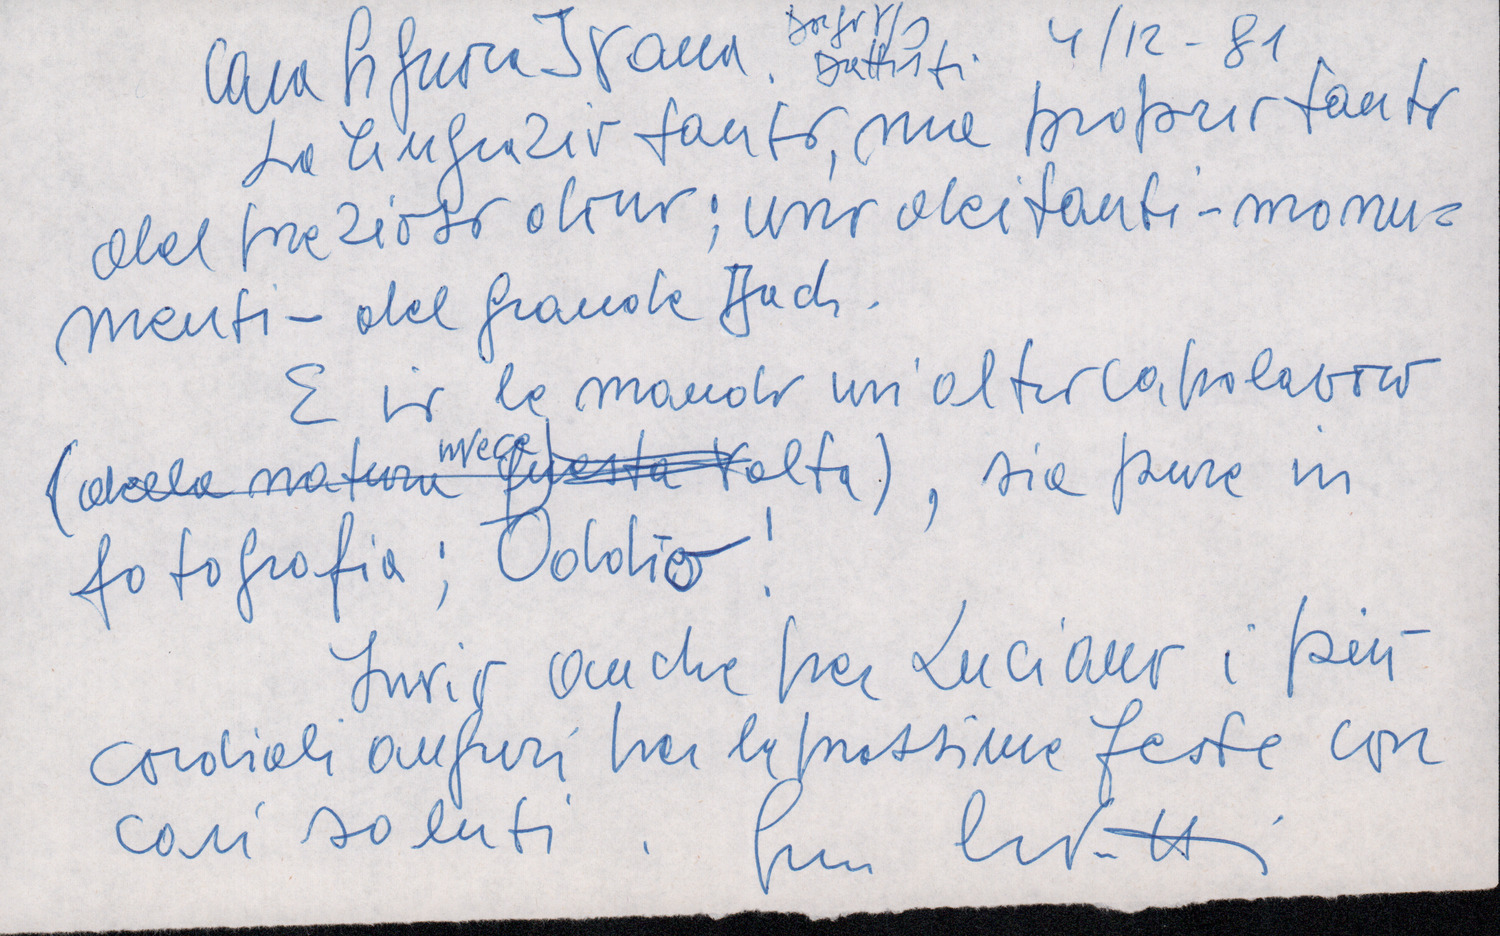 Cara Signora Ivana. 4/12-81
La ringrazio tanto, ma proprio tanto
del prezioso dono; uno dei tanti - monu=
menti - del grande Bach.
E io le mando un'altro capolavoro
(della natura invece questa volta), sia pure in
fotografia; Oddio!
Invio anche per Luciano i più
cordiali auguri per le prossime feste con
cari saluti.